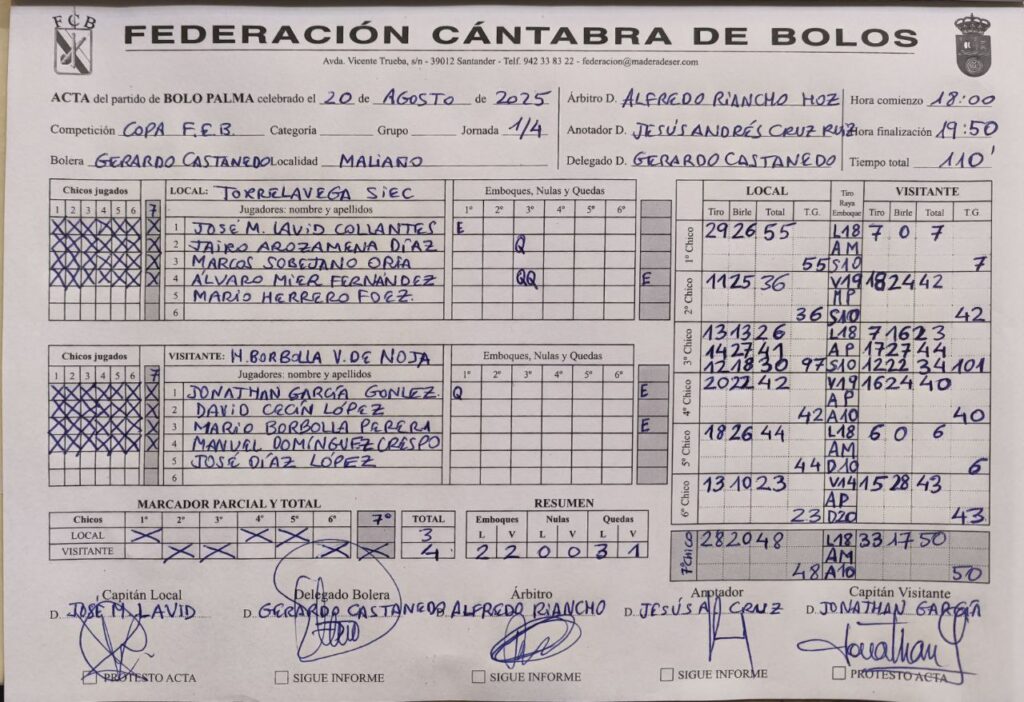 FCB
FEDERACIÓN CÁNTABRA DE BOLOS
Avda. Vicente Trueba, s/n - 39012 Santander - Telf. 942 33 83 22 - federacion@maderadeser.com
ACTA del partido de BOLO PALMA celebrado el 20 de AGOSTO de 2025
Competición COPA F.E.B. Categoría Grupo Jornada 1/4
Bolera GERARDO CASTANEDO Localidad MALIAÑO
Árbitro D. ALFREDO RIANCHO HOZ
Anotador D. JESÚS ANDRÉS CRUZ RUIZ
Delegado D. GERARDO CASTANEDO
Hora comienzo 18:00
Hora finalización 19:50
Tiempo total 110'
Chicos jugados
1 2 3 4 5 6 7
LOCAL: TORRELAVEGA SIEC
Jugadores: nombre y apellidos
Emboques, Nulas y Quedas
1º 2º 3º 4º 5º 6º
1 JOSÉ M. LAVID COLLANTES E
2 JAIRO AROZAMENA DÍAZ Q
3 MARCOS SOBEJANO ORIA
4 ÁLVARO MIER FERNÁNDEZ QQ E
5 MARIO HERRERO FDEZ.
6
Chicos jugados
1 2 3 4 5 6 7
VISITANTE: M. BORBOLLA V. DE NOJA
Jugadores: nombre y apellidos
Emboques, Nulas y Quedas
1º 2º 3º 4º 5º 6º
1 JONATHAN GARCÍA GONLEZ. Q E
2 DAVID CECÍN LÓPEZ
3 MARIO BORBOLLA PERERA E
4 MANUEL DOMÍNGUEZ CRESPO
5 JOSÉ DÍAZ LÓPEZ
6
LOCAL Tiro Raya Emboque VISITANTE
Tiro Birle Total T.G. Tiro Birle Total T.G.
1º Chico 29 26 55 L18 7 0 7
AM
55 S10 7
2º Chico 11 25 36 V19 18 24 42
MP
36 S10 42
3º Chico 13 13 26 L18 7 16 23
14 27 41 AP 17 27 44
12 18 30 97 S10 12 22 34 101
4º Chico 20 22 42 V19 16 24 40
AP
42 A10 40
5º Chico 18 26 44 L18 6 0 6
AM
44 D10 6
6º Chico 13 10 23 V14 15 28 43
AP
23 D20 43
7º CHICO 28 20 48 L18 33 17 50
AM
48 A10 50
MARCADOR PARCIAL Y TOTAL
Chicos 1º 2º 3º 4º 5º 6º 7º TOTAL
LOCAL X X X 3
VISITANTE X X X X 4
RESUMEN
Emboques Nulas Quedas
L V L V L V
2 2 0 0 3 1
Capitán Local Delegado Bolera Árbitro Anotador Capitán Visitante
D. JOSÉ M. LAVID D. GERARDO CASTANEDO D. ALFREDO RIANCHO D. JESÚS A. CRUZ D. JONATHAN GARCÍA
Jonathan
PROTESTO ACTA SIGUE INFORME SIGUE INFORME SIGUE INFORME PROTESTO ACTA